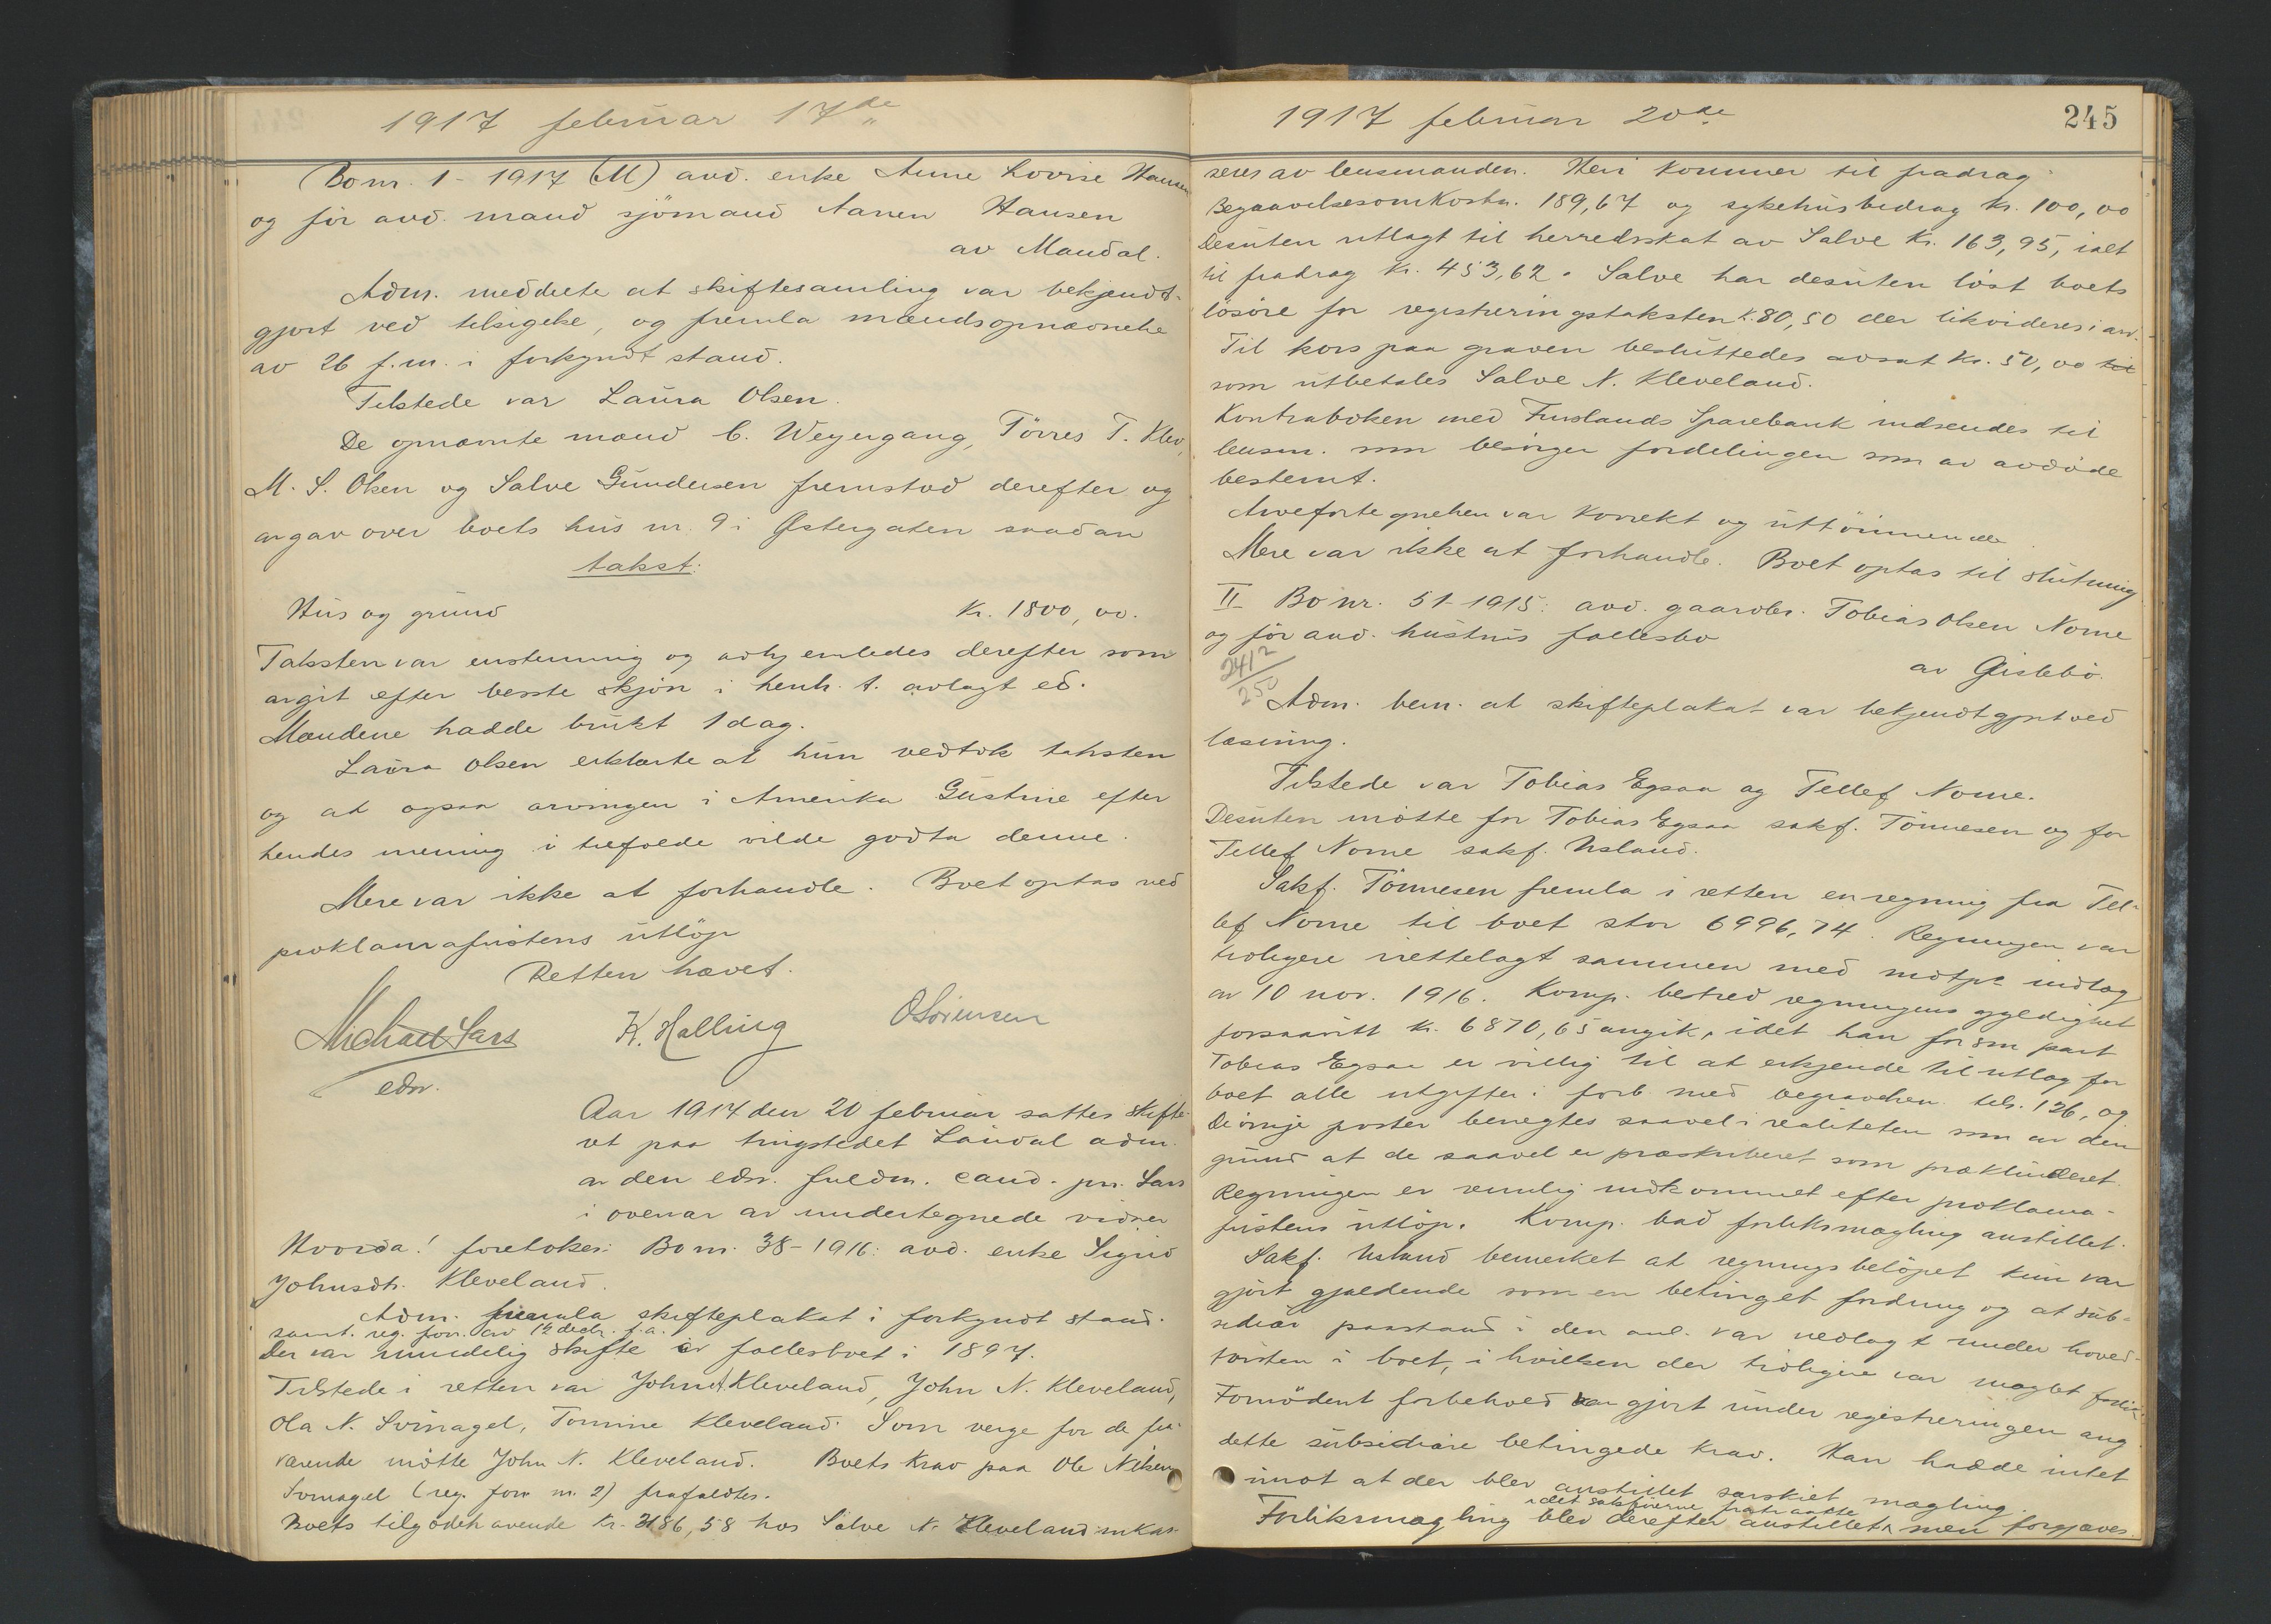 1917 februar 17de
Bo nr. 1 - 1917 (M) avd. enke Anne Lovise Hansen
og før avd. mand sjömand Aanen Hansen
av Mandal.
Adm. meddelte at skiftesamling var bekjendt-
gjort ved tilsigelse, og fremla mændsopnævnelse
av 26 f.m. i forkyndt stand.
Tilstede var Laura Olsen.
De opnævnte mænd C. Weyergang, Törres T. Klev,
M. S. Olsen og Salve Gundersen fremstod derefter og
avgav over boets hus nr. 9 i Østergaten saadan
takst:
Hus og grund Kr. 1800,00.
Taksten var enstemmig og avhjemledes derefter som
avgit efter beste skjön i henh. t. avlagt ed.
Mændene hadde brukt 1 dag.
Laura Olsen erklærte at hun vedtok taksten
og at ogsaa arvingen i Amerika Gustine efter
hendes mening i tilfælde vilde godta denne.
Mere var ikke at forhandle. Boet optas ved
proklamafristens utlöp
Retten hævet.
Michael Sars K. Halling O Sörensen
edsv.
Aar 1917 den 20 februar sattes skifte-
ret paa tingstedet Laudal adm.
av den edsv. fuldm. cand. jur. Sars
i overvær av undertegnede vidner
Hvorda! foretokes: Bo nr. 38 - 1916: avd. enke Sigrid
Johnsdtr. Kleveland.
Adm. fremla skifteplakat i forkyndt stand.
samt. reg. forr. av 12 decbr. f.a.
Der var mindelig skifte av fællesboet i 1897.
Tilstede i retten var Johnet Kleveland, John N. Kleveland,
Ola N. Svinagel, Tomine Kleveland. Som verge for de fra-
værende mötte John N. Kleveland. Boets krav paa Ole Nilsen
Svinagel (reg. forr nr. 2) frafaldtes.
Boets tilgodehavende Kr. 3186,58 hos Salve N. Kleveland inkas-
1917 februar 20de
245
seres av lensmanden. Heri kommer til fradrag
Begravelsesomkostn. 189,67 og sykehusbidrag kr. 100,00
Desuten utlagt til herredsskat av Salve Kr. 163,95, ialt
til fradrag kr. 453,62. Salve har desuten löst boets
lösöre for registreringstaksten k. 80,50 der likvideres i arv.
Til kors paa graven besluttedes avsat Kr. 50,00 til
som utbetales Salve N. Kleveland.
Kontraboken med Finslands Sparebank indsendes til
lensm. som besörger fordelingen som av avdöde
bestemt.
Arvefortegnelsen var korrekt og uttömmende
Mere var ikke at forhandle. Boet optas til slutning
II Bo nr. 51 - 1915: avd. gaardbr. Tobias Olsen Nome
og før avd. hustrus fællesbo
av Gislebö.
2412
250
Adm. bem. at skifteplakat var bekjendtgjort ved
læsning.
Tilstede var Tobias Egsaa og Tellef Nome.
Desuten mötte for Tobias Egsaa sakf. Tönnesen og for
Tellef Nome sakf. Usland.
Sakf. Tönnesen fremla i retten en regning fra Tel-
lef Nome til boet stor 6996,74. Regningen var
tidligere irettelagt sammen med motpe indlæg
av 10 nov. 1916. Komp. bestred regningens gyldighet
forsaavitt kr. 6870,65 angik, idet han for sin part
Tobias Egsaa er villig til at erkjende til utlæg for
boet alle utgifter i forb med begravelsen tils. 126,09
De övrige poster benegtes saavel i realiteten som av den
grund at de saavel er præskriberet som præklüderet.
Regningen er nemlig indkommet efter proklama-
fristens utlöp. Komp. bad forliksmægling anstillet.
Sakf. Usland bemerket at regningsbelöpet kun var
gjort gjældende som en betinget fordring og at sub-
sidiær paastand i den anl. var nedlagt under hoved-
tvisten i boet, i hvilken der tidligere var mæglet forlik
Fornödent forbehold var gjort under registreringen ang
dette subsidiære betingede krav. Han hadde intet
imot at der blev anstillet særskilt mægling.
idet sakförerne fratraadte
Forliksmægling blev derefter anstillet men forgjæves.